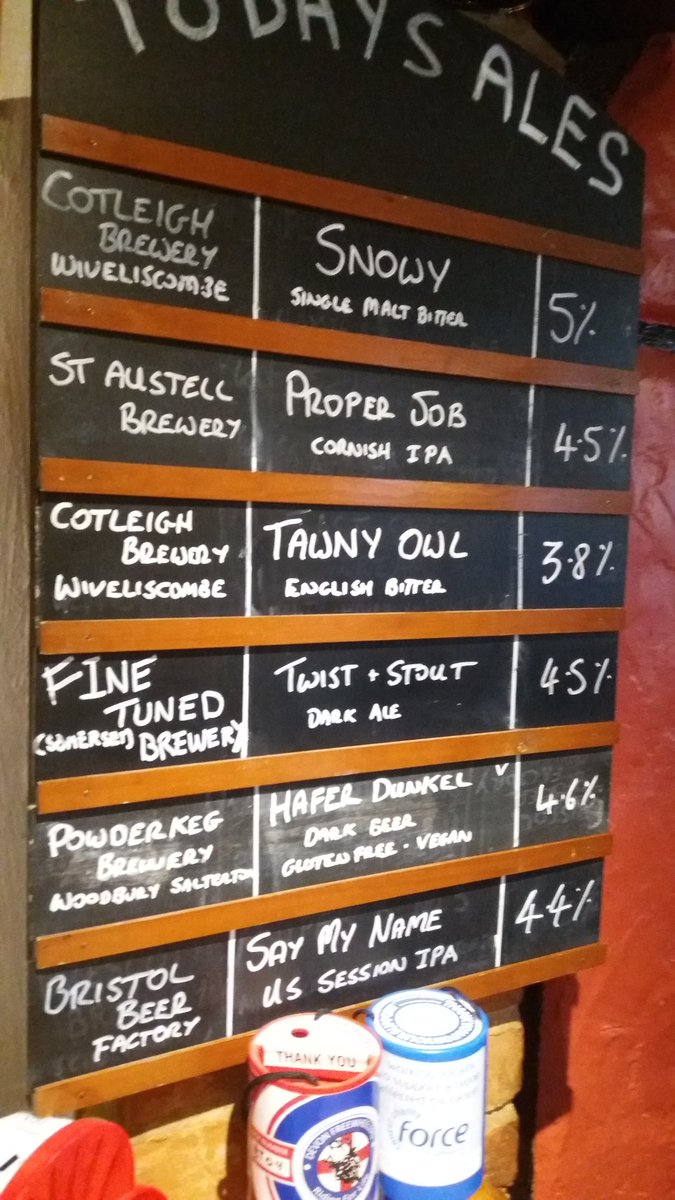 TODAYS ALES
COTLEIGH
BREWERY
WIVELISCOMBE
SNOWY
SINGLE MALT BITTER
5%
ST AUSTELL
BREWERY
PROPER JOB
CORNISH IPA
4.5%
COTLEIGH
BREWERY
WIVELISCOMBE
TAWNY OWL
ENGLISH BITTER
3.8%
FINE
TUNED
(SOMERSET) BREWERY
TWIST + STOUT
DARK ALE
4.5%
POWDERKEG
BREWERY
WOODBURY SALTERTON
HAFER DUNKEL V
DARK BEER
GLUTEN FREE · VEGAN
4.6%
BRISTOL
BEER
FACTORY
SAY MY NAME
US SESSION IPA
4.4%
THANK YOU
DEVON FREEWHEELERS
force